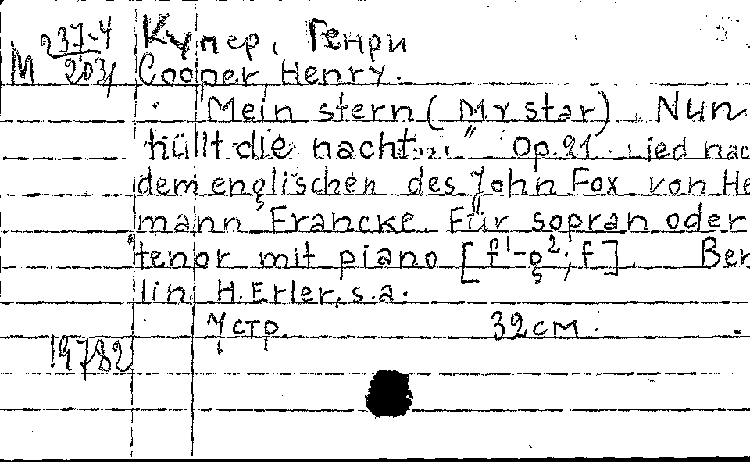 М 237-4/203
Купер, Генри
Cooper, Henry.
Mein stern (My star). Nun
hüllt die nacht..." Op. 21. Lied nac
dem englischen des John Fox von He
mann Francke. Für sopran oder
tenor mit piano [f¹-g²; f]. Ber
lin, H. Erler, s.a.
7 стр. 32 см.
19782